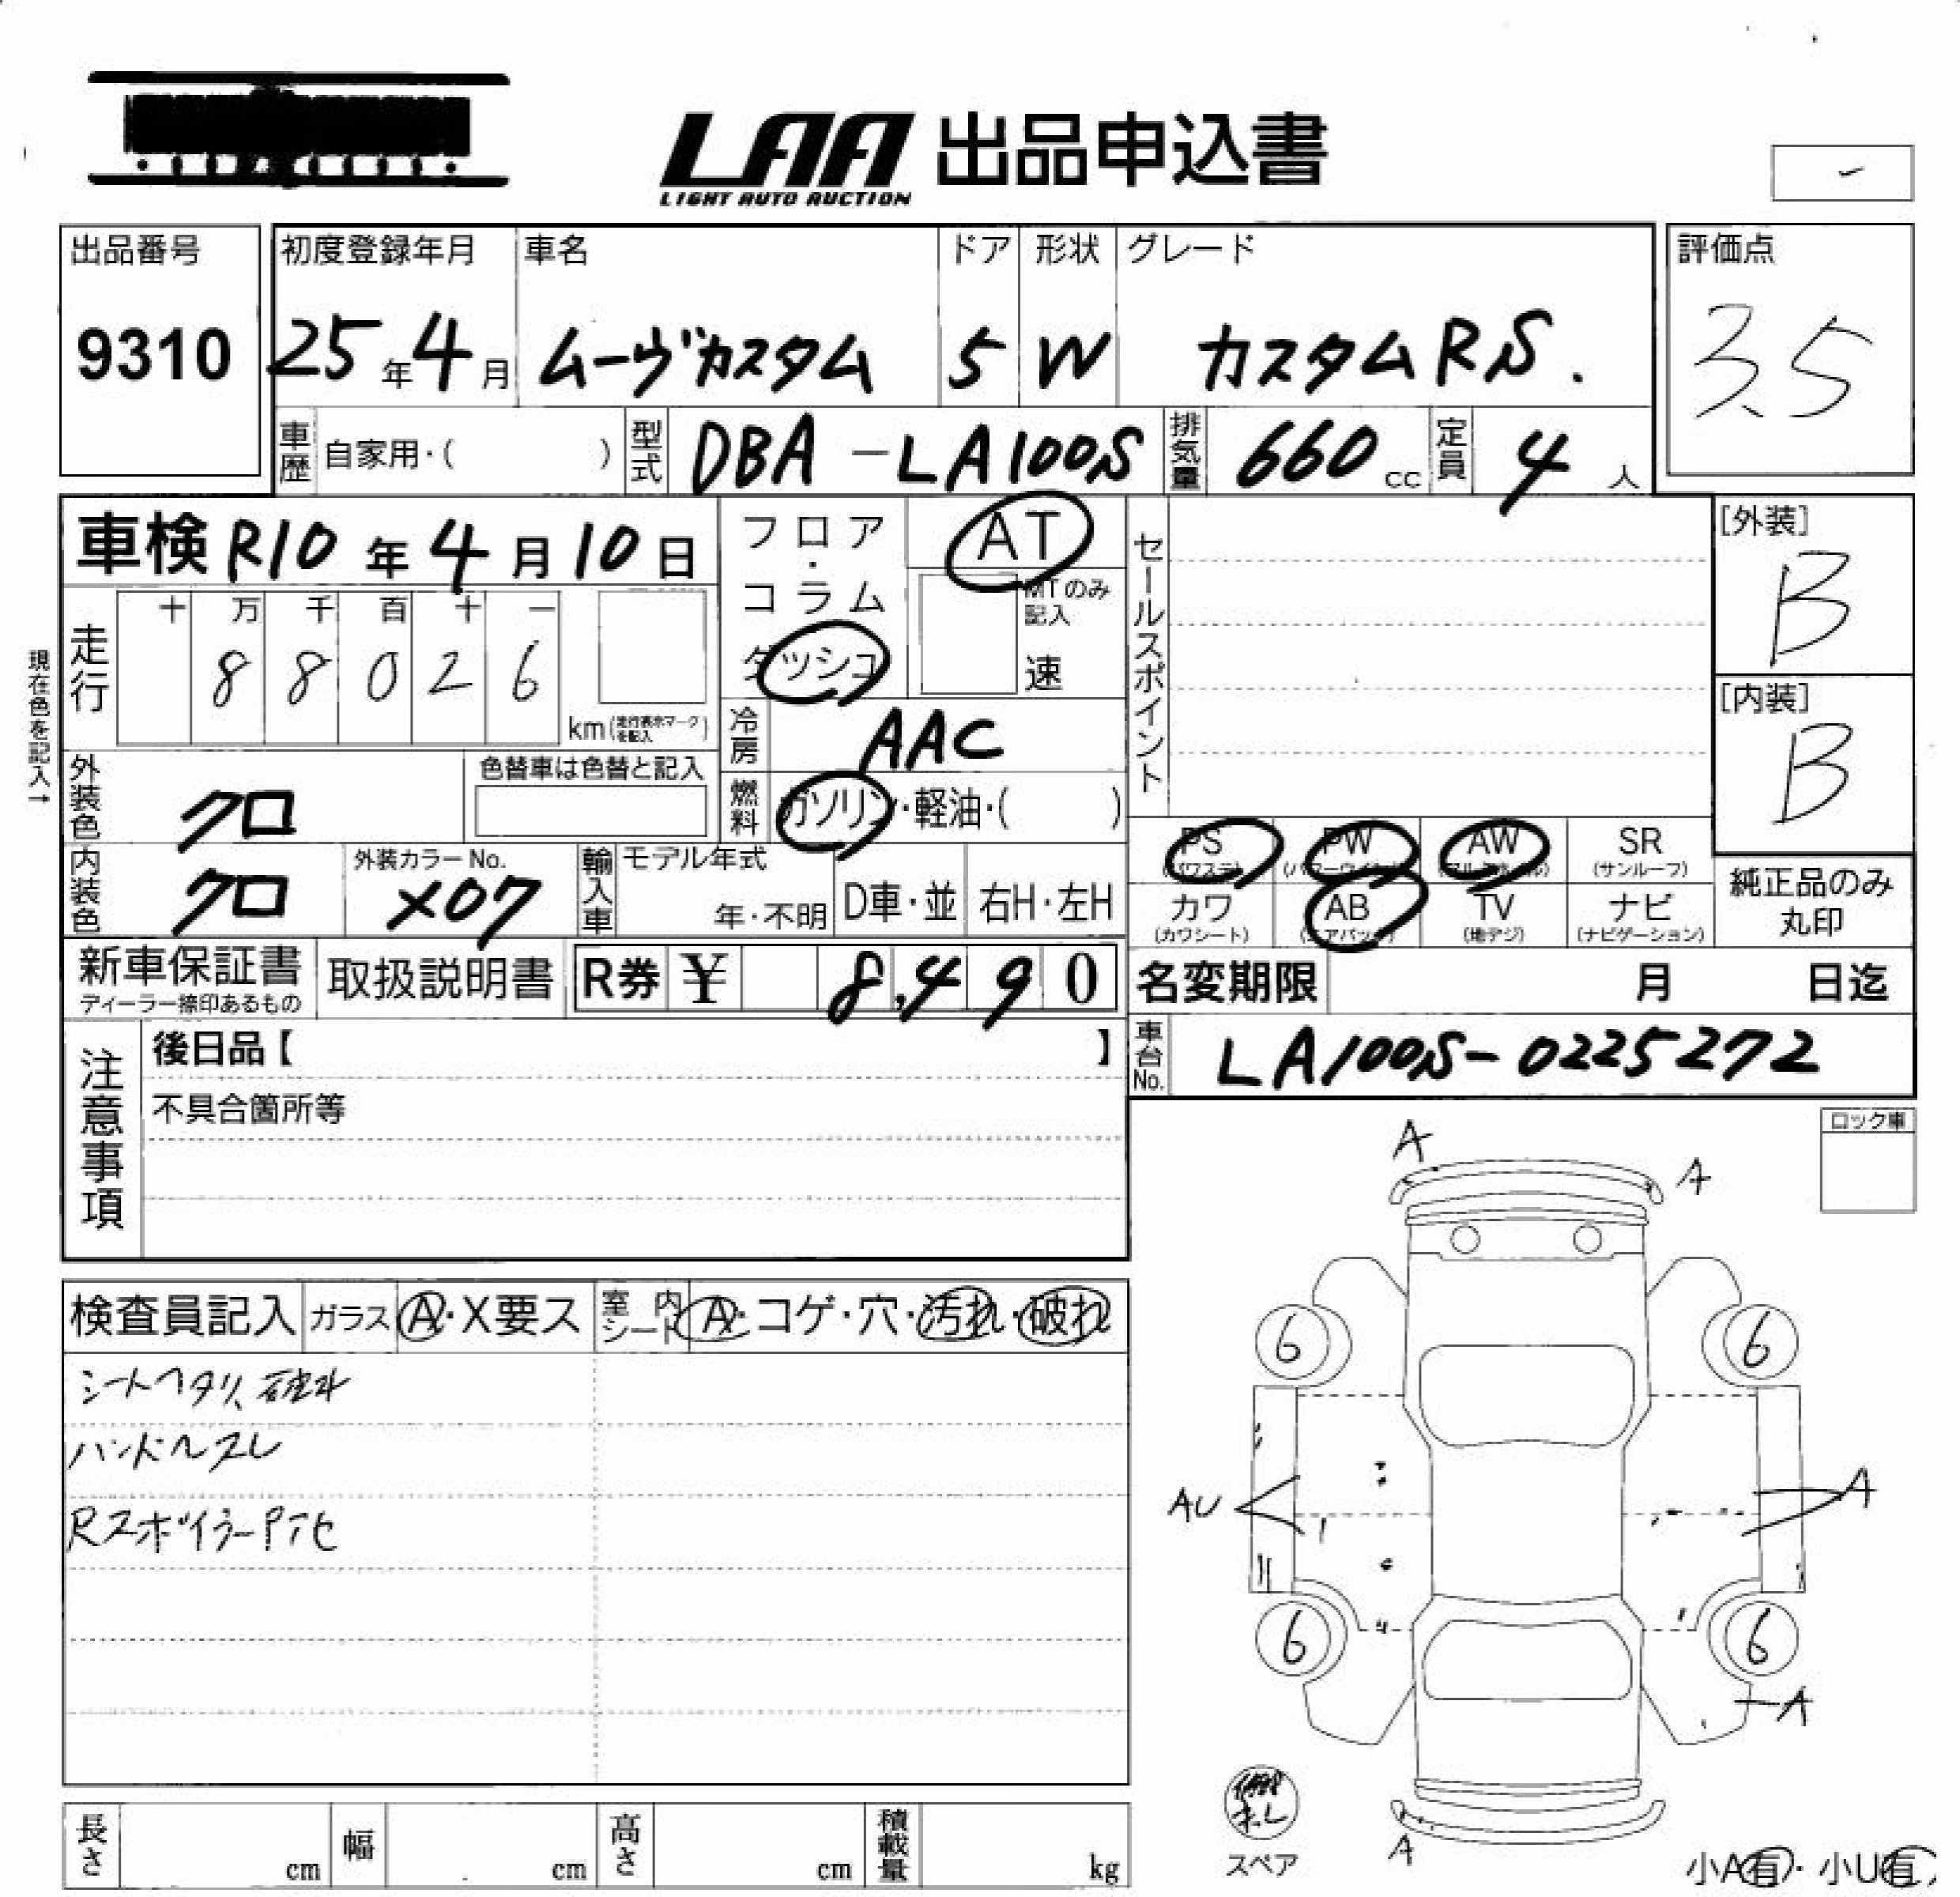 LAA 出品申込書
LIGHT AUTO AUCTION
出品番号 初度登録年月 車名 ドア 形状 グレード 評価点
9310 25年4月 ムーヴカスタム 5 W カスタムRS. 3.5
車歴 自家用・( ) 型式 DBA-LA100S 排気量 660cc 定員 4人
車検 R10年4月10日 フロア・コラム ダッシュ AT セールスポイント [外装]
B
MTのみ記入
速
十 万 千 百 十 一
走行 88026
km(走行表示マークを記入)
[内装]
B
現在色を記入→
冷房 AAC
外装色 クロ 色替車は色替と記入 燃料 ガソリン・軽油・( )
PS PW AW SR
(パワステ) (パワーウインド) (アルミホイル) (サンルーフ)
内装色 クロ 外装カラーNo. X07 輸入車 モデル年式 年・不明 D車・並 右H・左H
カワ AB TV ナビ
(カワシート) (エアバック) (地デジ) (ナビゲーション)
純正品のみ
丸印
新車保証書 取扱説明書 R券 ¥ 8,490 名変期限 月 日迄
ディーラー捺印あるもの
後日品【 】 車台No. LA100S-0225272
注意事項 不具合箇所等
ロック車
A
A
検査員記入 ガラス A・X要ス 室内シート A・コゲ・穴・汚れ・破れ
6 6
シートヘタリ、破れ
ハンドルスレ
AU A
Rスポイラー
6 6
A
スペア
A
長さ cm 幅 cm 高さ cm 積載量 kg
小A有・小U有